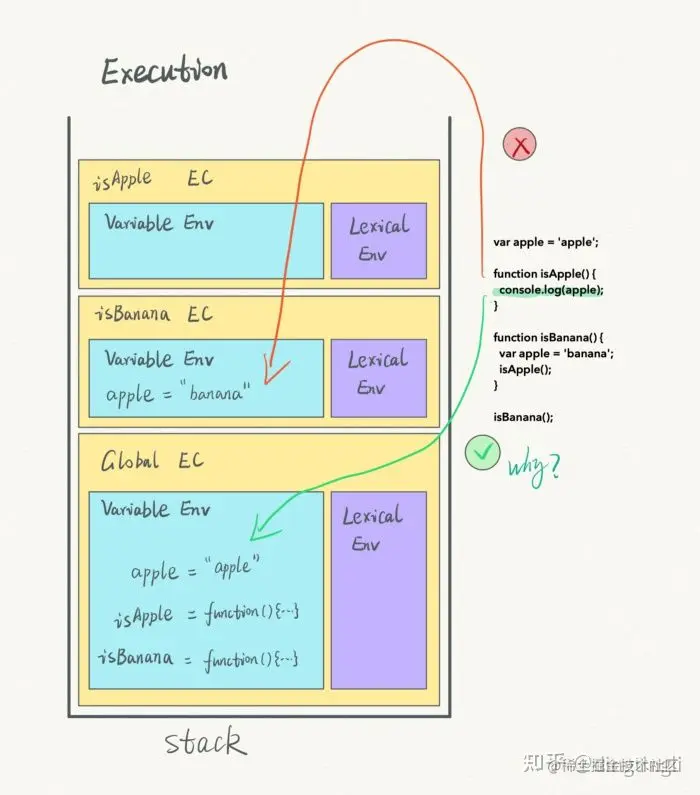 Execution
isApple EC
Variable Env
Lexical
Env
isBanana EC
Variable Env
apple = "banana"
Lexical
Env
Global EC
Variable Env
apple = "apple"
isApple = function(){...}
isBanana = function(){...}
Lexical
Env
stack
var apple = 'apple';
function isApple() {
console.log(apple);
}
function isBanana() {
var apple = 'banana';
isApple();
}
isBanana();
why?
知乎
@稀土掘金技术社区